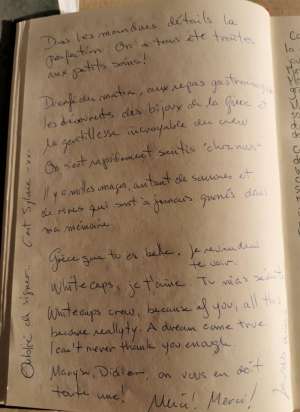 Dans les moindres détails la
perfection. On a tous été traités
aux petits soins!
D'enfer du matin, aux repas gastronomiques
les découvertes des bijoux de la Grèce et
la gentillesse incroyable du crew
On s'est rapidement sentis "chez nous"
Il y a milles images, autant de sourires et
de rires qui sont à jamais gravés dans
ma mémoire.
Grèce que tu es belle. Je reviendrai
te voir.
White caps, je t'aime. Tu m'as séduite
Whitecaps crew, because of you, all this
became reallyty. A dream come true
I can't never thank you enough.
Maryse, Didier, on vous en doit
toute une!
Merci! Merci!
Oublié de signer C'est Sylvie xxx